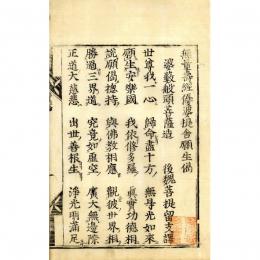 無量壽經優婆提舍願生偈
婆藪般頭菩薩造　後魏菩提留支譯
世尊我一心　歸命盡十方　無㝵光如來
願生安樂國　我依修多羅　真實功德相
說願偈總持　與佛教相應　觀彼世界相
勝過三界道　究竟如虛空　廣大無邊際
正道大慈悲　出世善根生　淨光明滿足